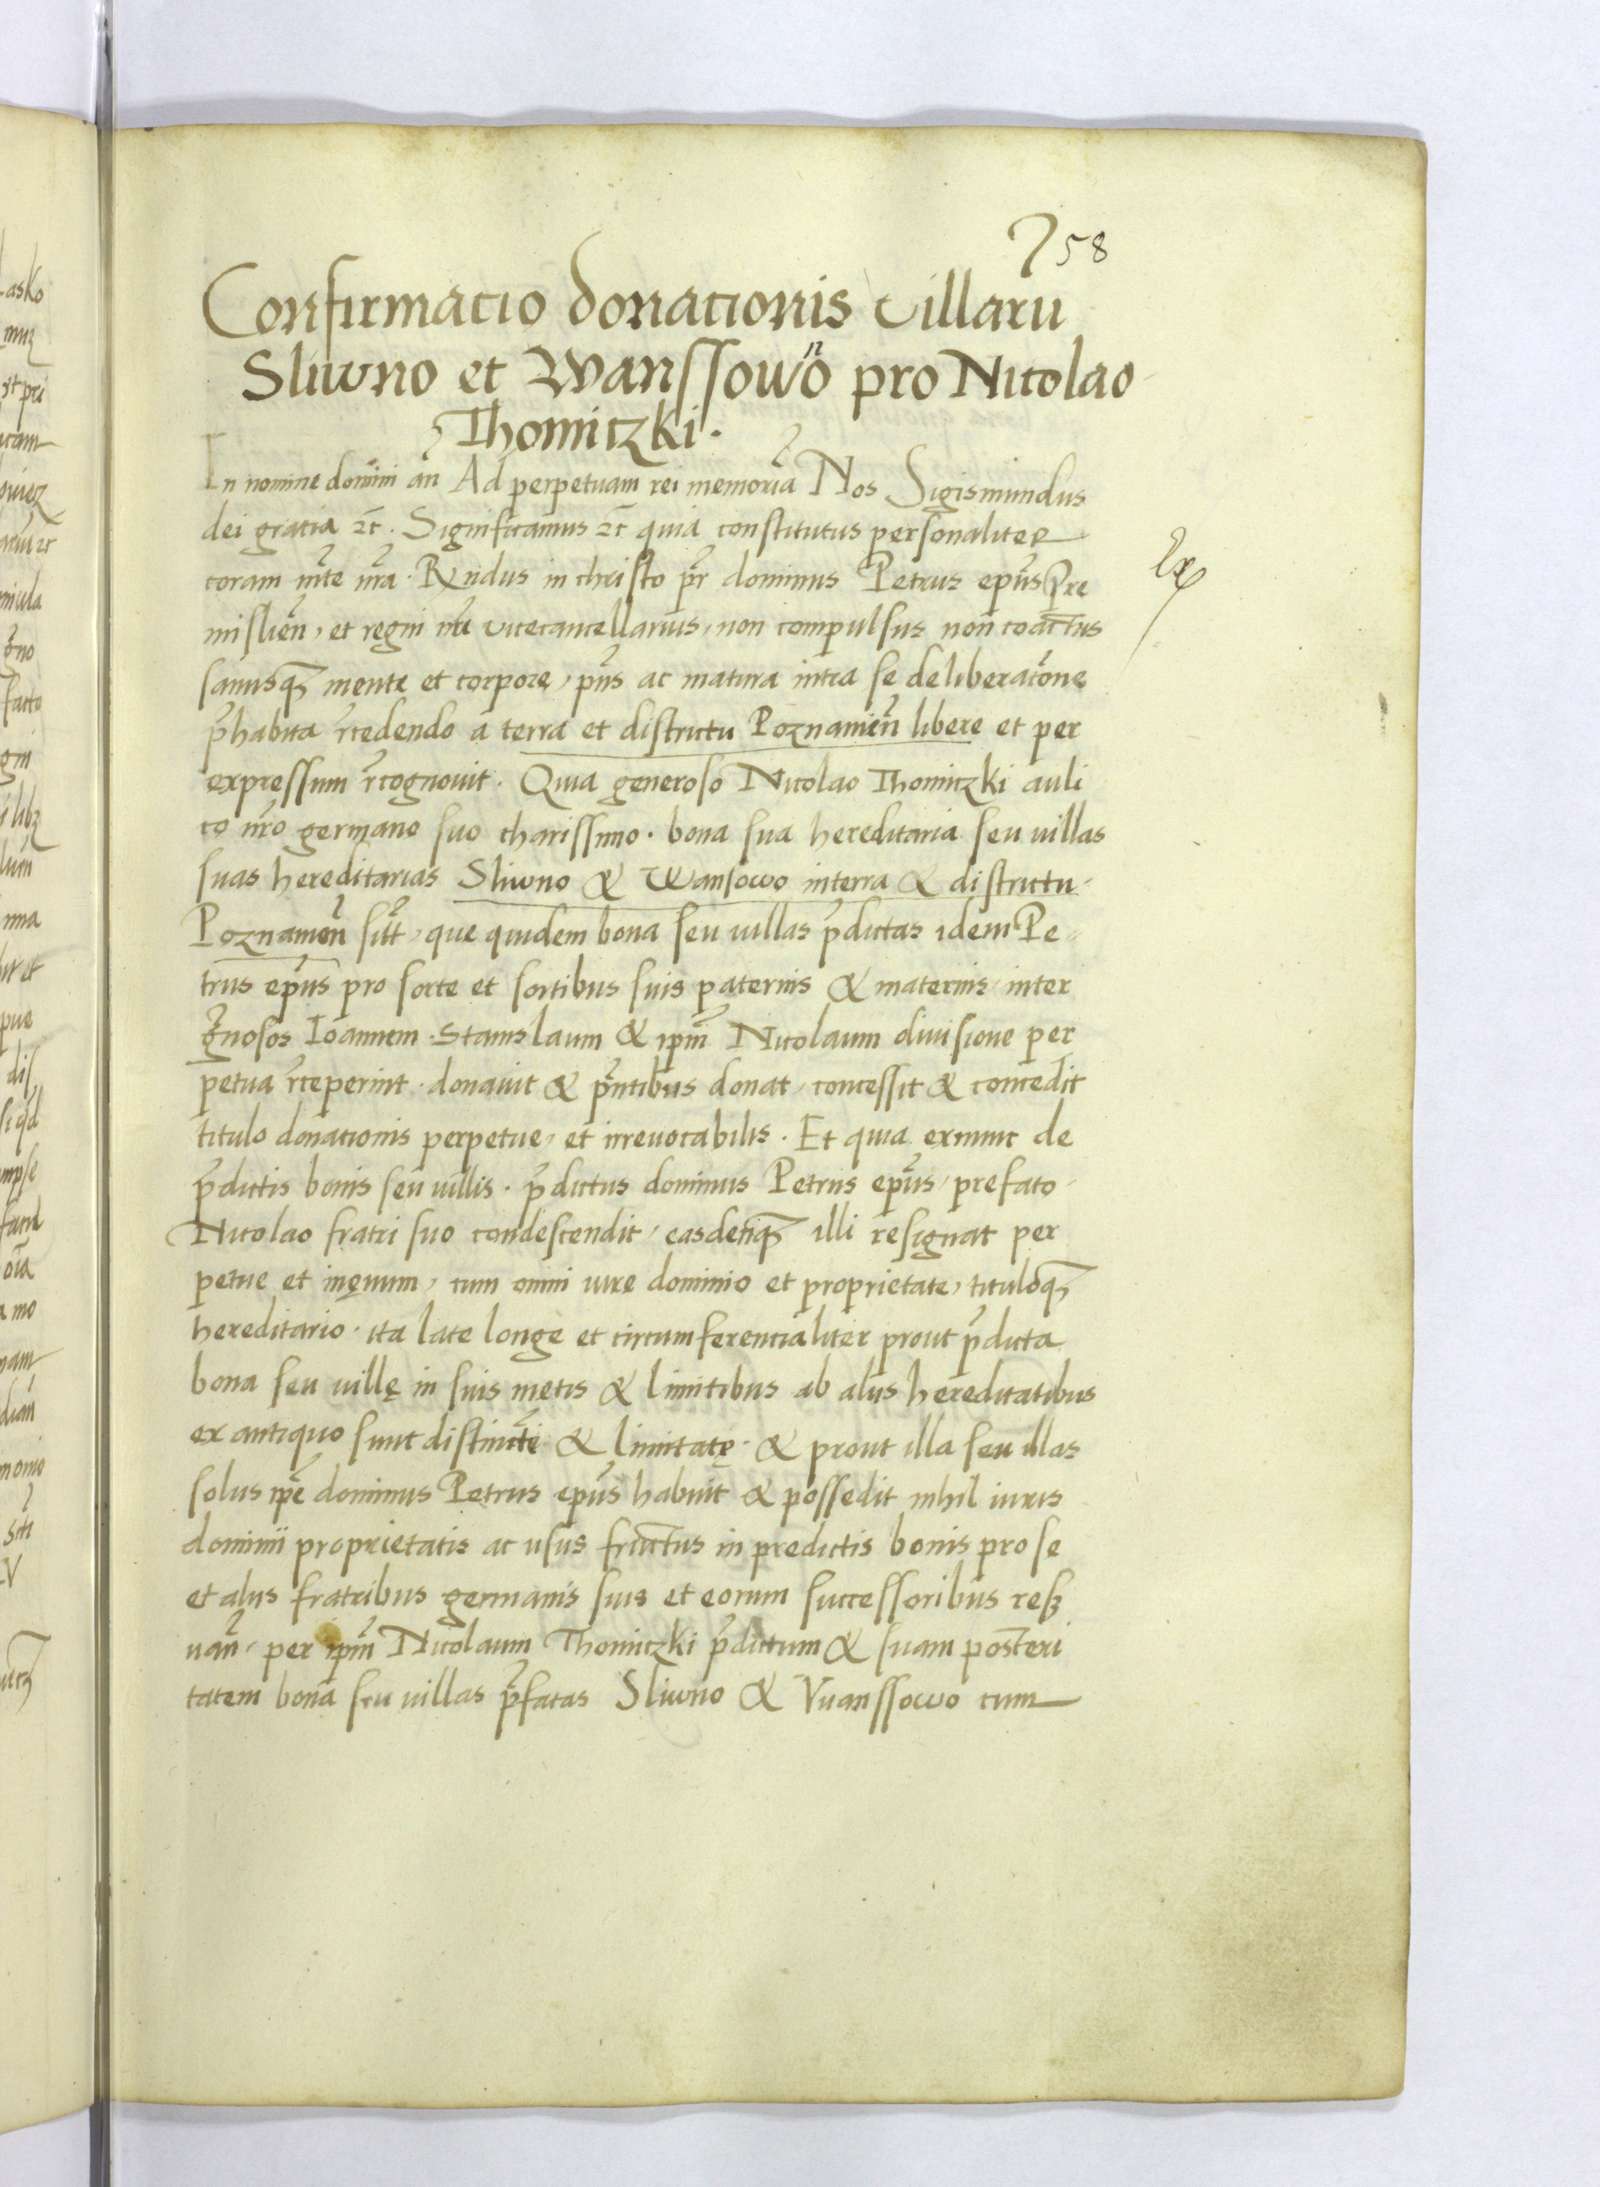 58
Confirmacio donacionis villarũ
Sliwno et Wanssowo pro Nicolao
Thomiczki.
In nomine domini añ Ad perpetuam rei memoriã Nos Sigismundus
dei gracia ⁊c̃. Significamus ⁊c̃ quia constitutus personaliter
coram mte nr̃a. Rndus in christo pr̃ dominus Petrus ep̃us Pre
mislieñ, et regni nr̃i vicecancellarius, non compulsus non coactus
sanusqꝫ mente et corpore, pñs ac matura intra se deliberacõne
p̃habita r̃cedendo a terra et districtu Poznamieñ libere et per
expressum r̃cognovit. Quia generoso Nicolao Thomiczki auli
co nr̃o germano suo charissimo. bona sua hereditaria seu villas
suas hereditarias Sliwno & Wansowo interra & districtu
Poznameñ sitt̃, que quidem bona seu villas p̃dictas idem Pe
trus ep̃us pro sorte et sortibus suis paternis & maternis inter
gñosos Ioannem Stanislaum & ipm̃ Nicolaum divisione per
petua r̃ceperint. donavit & p̃ntibus donat, concessit & concedit
titulo donacionis perpetue, et irrevocabilis. Et quia exnunc de
p̃dictis bonis seu villis. p̃dictus dominus Petrus ep̃us, prefato
Nicolao fratri suo condescendit, easdemqꝫ illi resignat per
petue et inęvum, cum omni iure dominio et proprietate, tituloqꝫ
hereditario. ita late longe et circumferencialiter prout p̃dicta
bona seu villę in suis metis & limitibus ab alijs hereditatibus
ex antiquo sunt distincte & limitatę. & prout illa seu illas
solus ipẽ dominus Petrus ep̃us habuit & possedit nihil iuris
dominii proprietatis ac usus fructus in predictis bonis pro se
et alijs fratribus germanis suis et eorum successoribus reß
vañ. per ipm̃ Nicolaum Thomiczki p̃dictum & suam posteri
tatem bona seu villas p̃fatas Sliwno & Vuanssowo cum